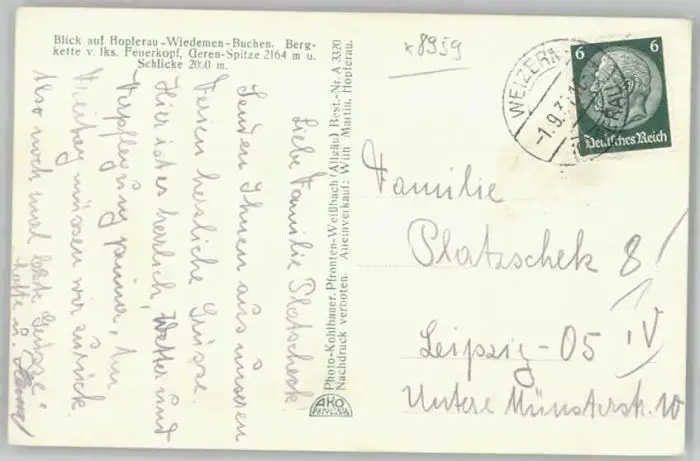 Blick auf Hopferau-Wiedemen-Buchen. Berg-
kette v. lks. Feuerkopf, Geren-Spitze 2164 m u.
Schlicke 2060 m.
x 8959
Liebe Familie Platscheck.
Senden Ihnen aus unseren
Ferien herzliche Grüsse.
Hier ist es herrlich, Wetter und
Verpflegung prima, Am
Freitag müssen wir zurück.
Also noch mal liebe Grüsse
u.
Photo-Kohlbauer, Pfronten-Weißbach (Allgäu) Best.-Nr. A 3320
Nachdruck verboten. Alleinverkauf: Wilh Martin, Hopferau.
AKO
WEIZERN
-1.9.3
RAU
6 6
Deutsches Reich
Familie
Platzschek 8
Leipzig-O5 IV
Untere Münsterstr. 10